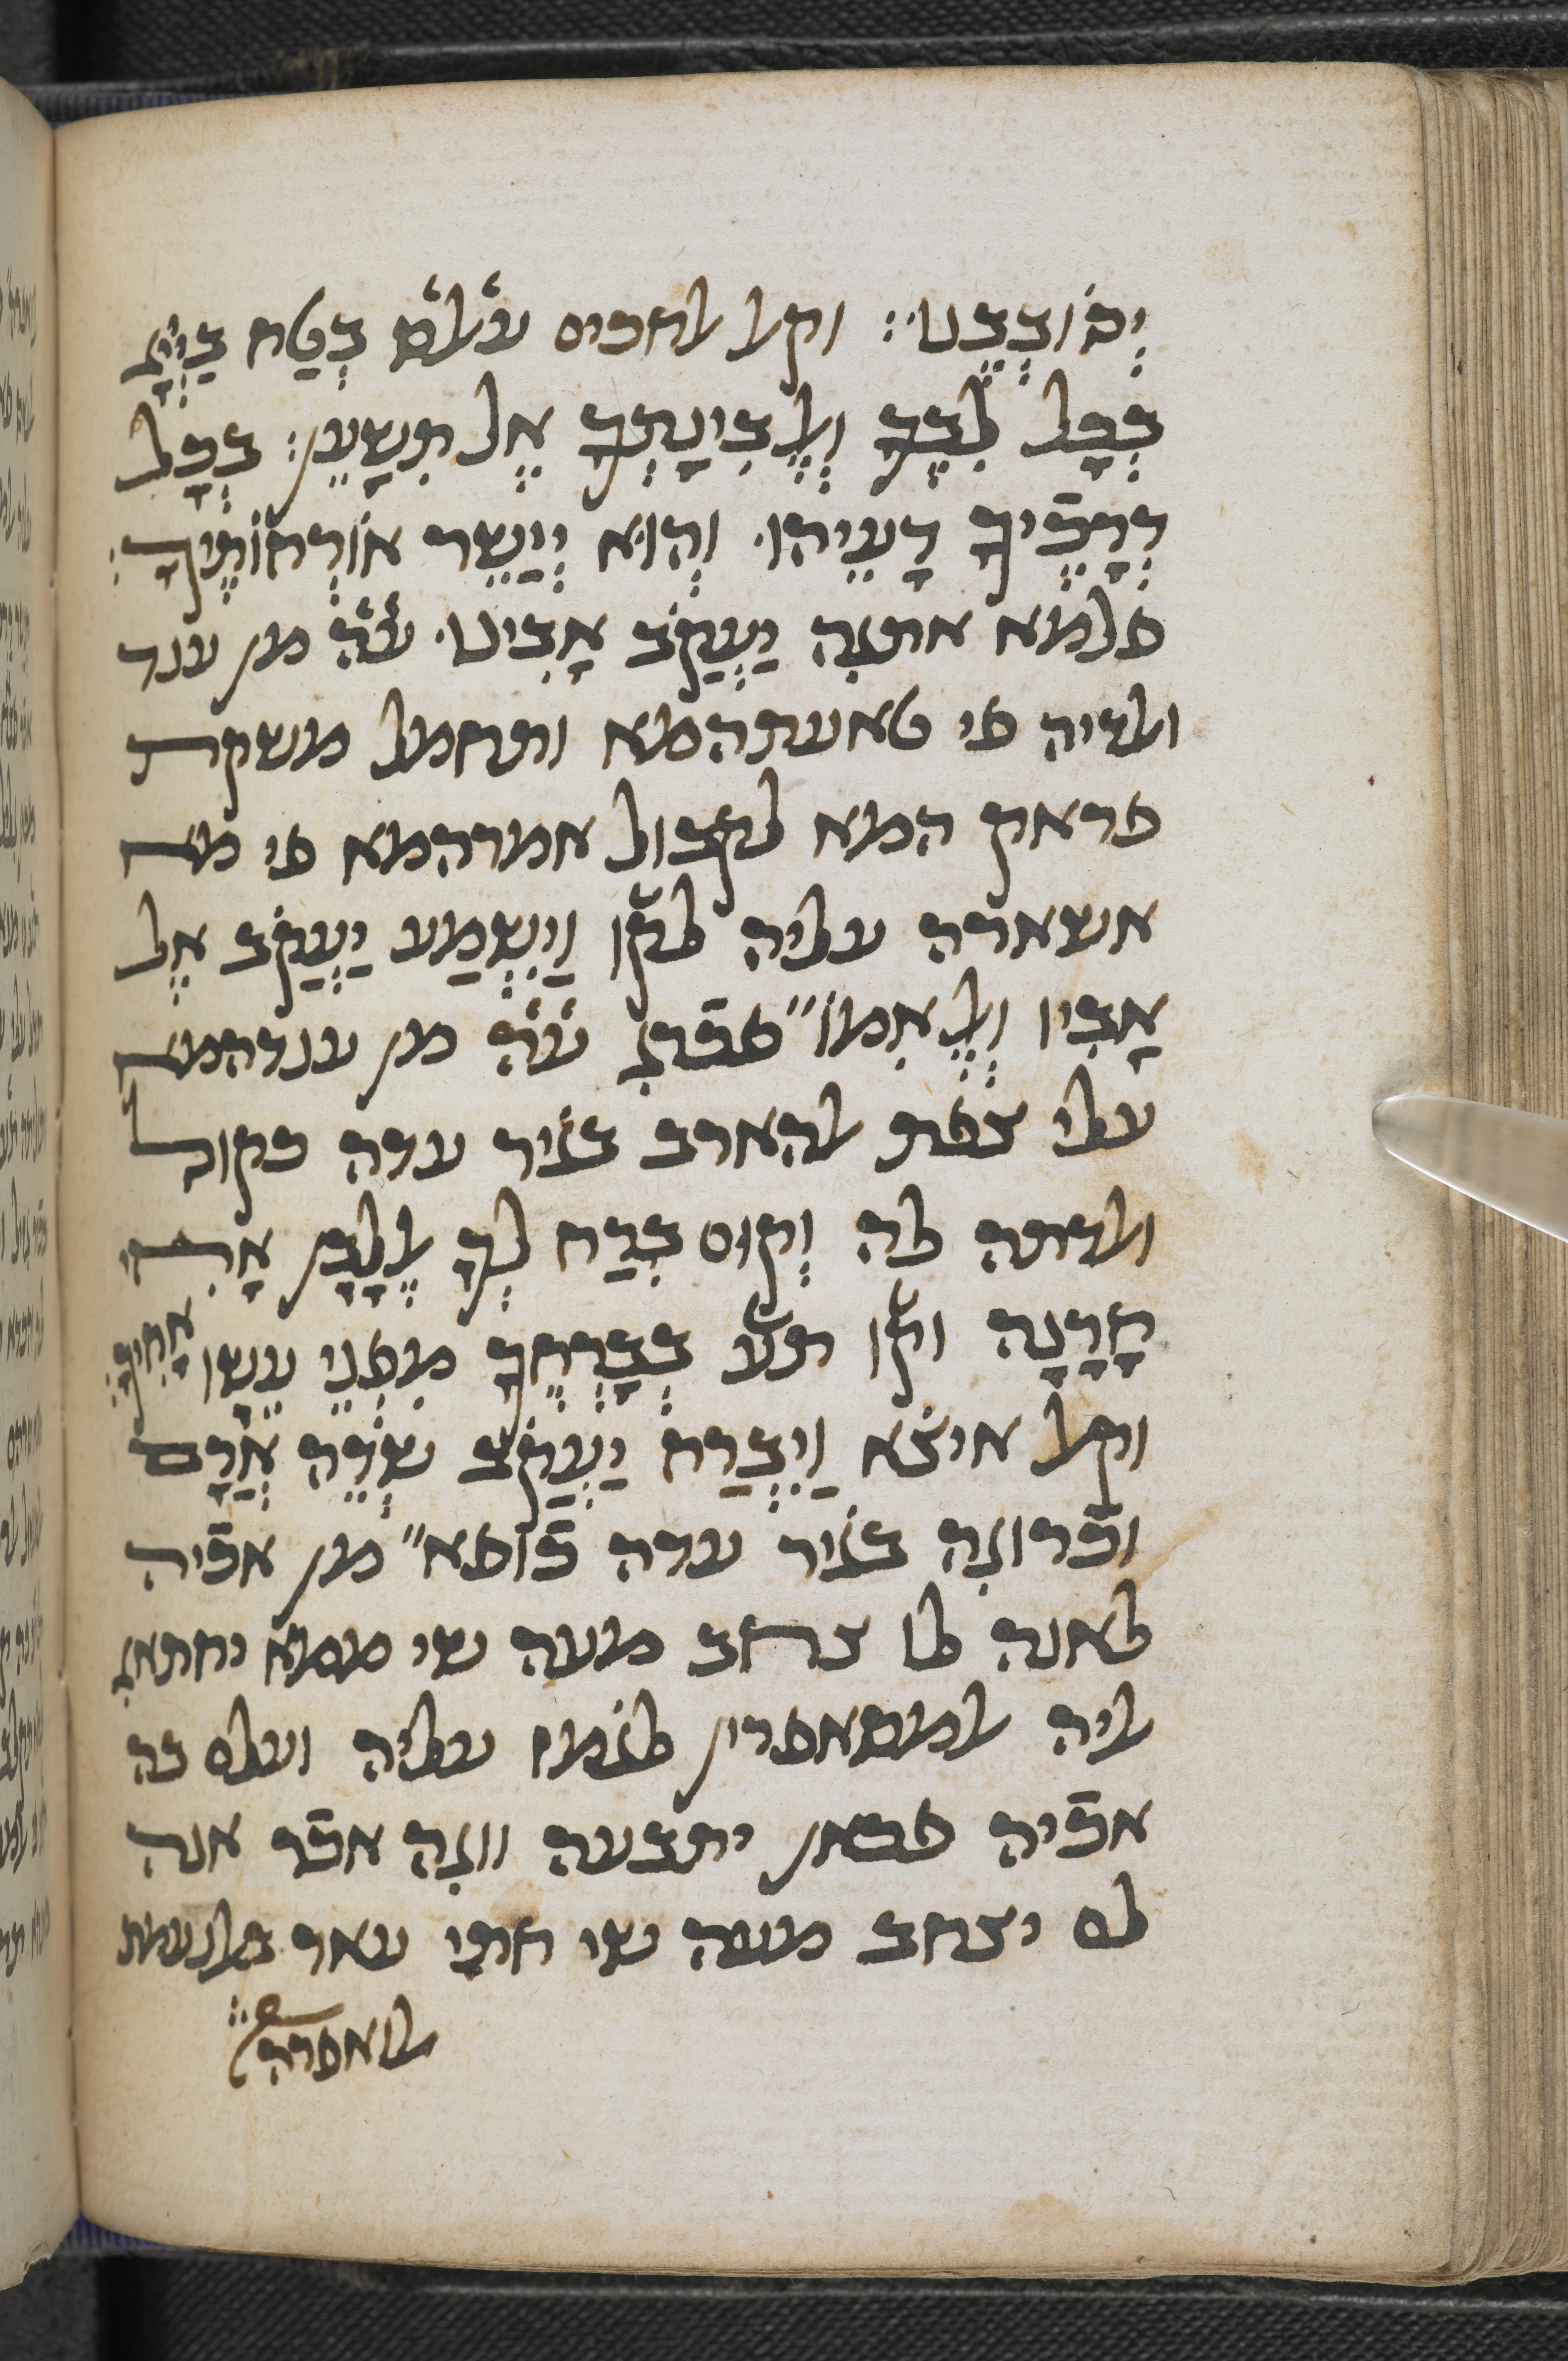 יְסוֹבְבֶנּוּ׃ וקאל אלחכים עׄאלסׄ בְּטַח בַּייָ
בְּכָל לִבֶּךָ וְאֶל בִּינָתְךָ אֶל תִּשָׁעֵן׃ בְּכָל
דְּרָכֶיךָ דָעֵיהוּ וְהוּא יְיַשֵּׁר אוֹרְחוֹתֶיךָ׃
פלמא אתגׄה יַעֲקֹב אָבִינוּ עׄהׄ מן ענד
ואלדיה פי טאעתהמא ותחמל משקת
פראק המא לקבול אמרהמא פי מא
אשארה עליה לקו וַיִּשְׁמַע יַעֲקֹב אֶל
אָבִיו וְאֶל אִמּוֹ״ פכׄרגׄ עׄהׄ מן ענדהמא
עלי צפת אלהארב בגׄיר עדה כקול
ואלדתה לה וְקוּם בְּרַח לְךָ אֶל לָבָן אָחִי
חָרָנָה וקו תע בְּבָרְחֲךָ מִפְּנֵי עֵשָׂו אָחִיךָ
וקאל איצׄא וַיִּבְרַח יַעֲקֹב שְׂדֵה אֲרָם
וכׄרוגׄה בגׄיר עדה כׄופא״ מן אכׄיה
לאנה לו צחב מעה שי ממא יחתאגׄ
אליה אלמסאפרין עליה ועלם בה
אכׄיה פכאן יתבעה ווגׄה אכׄר אנה
לם יצחב מעה שי חתי עאד באלנעמת
אלואפרה